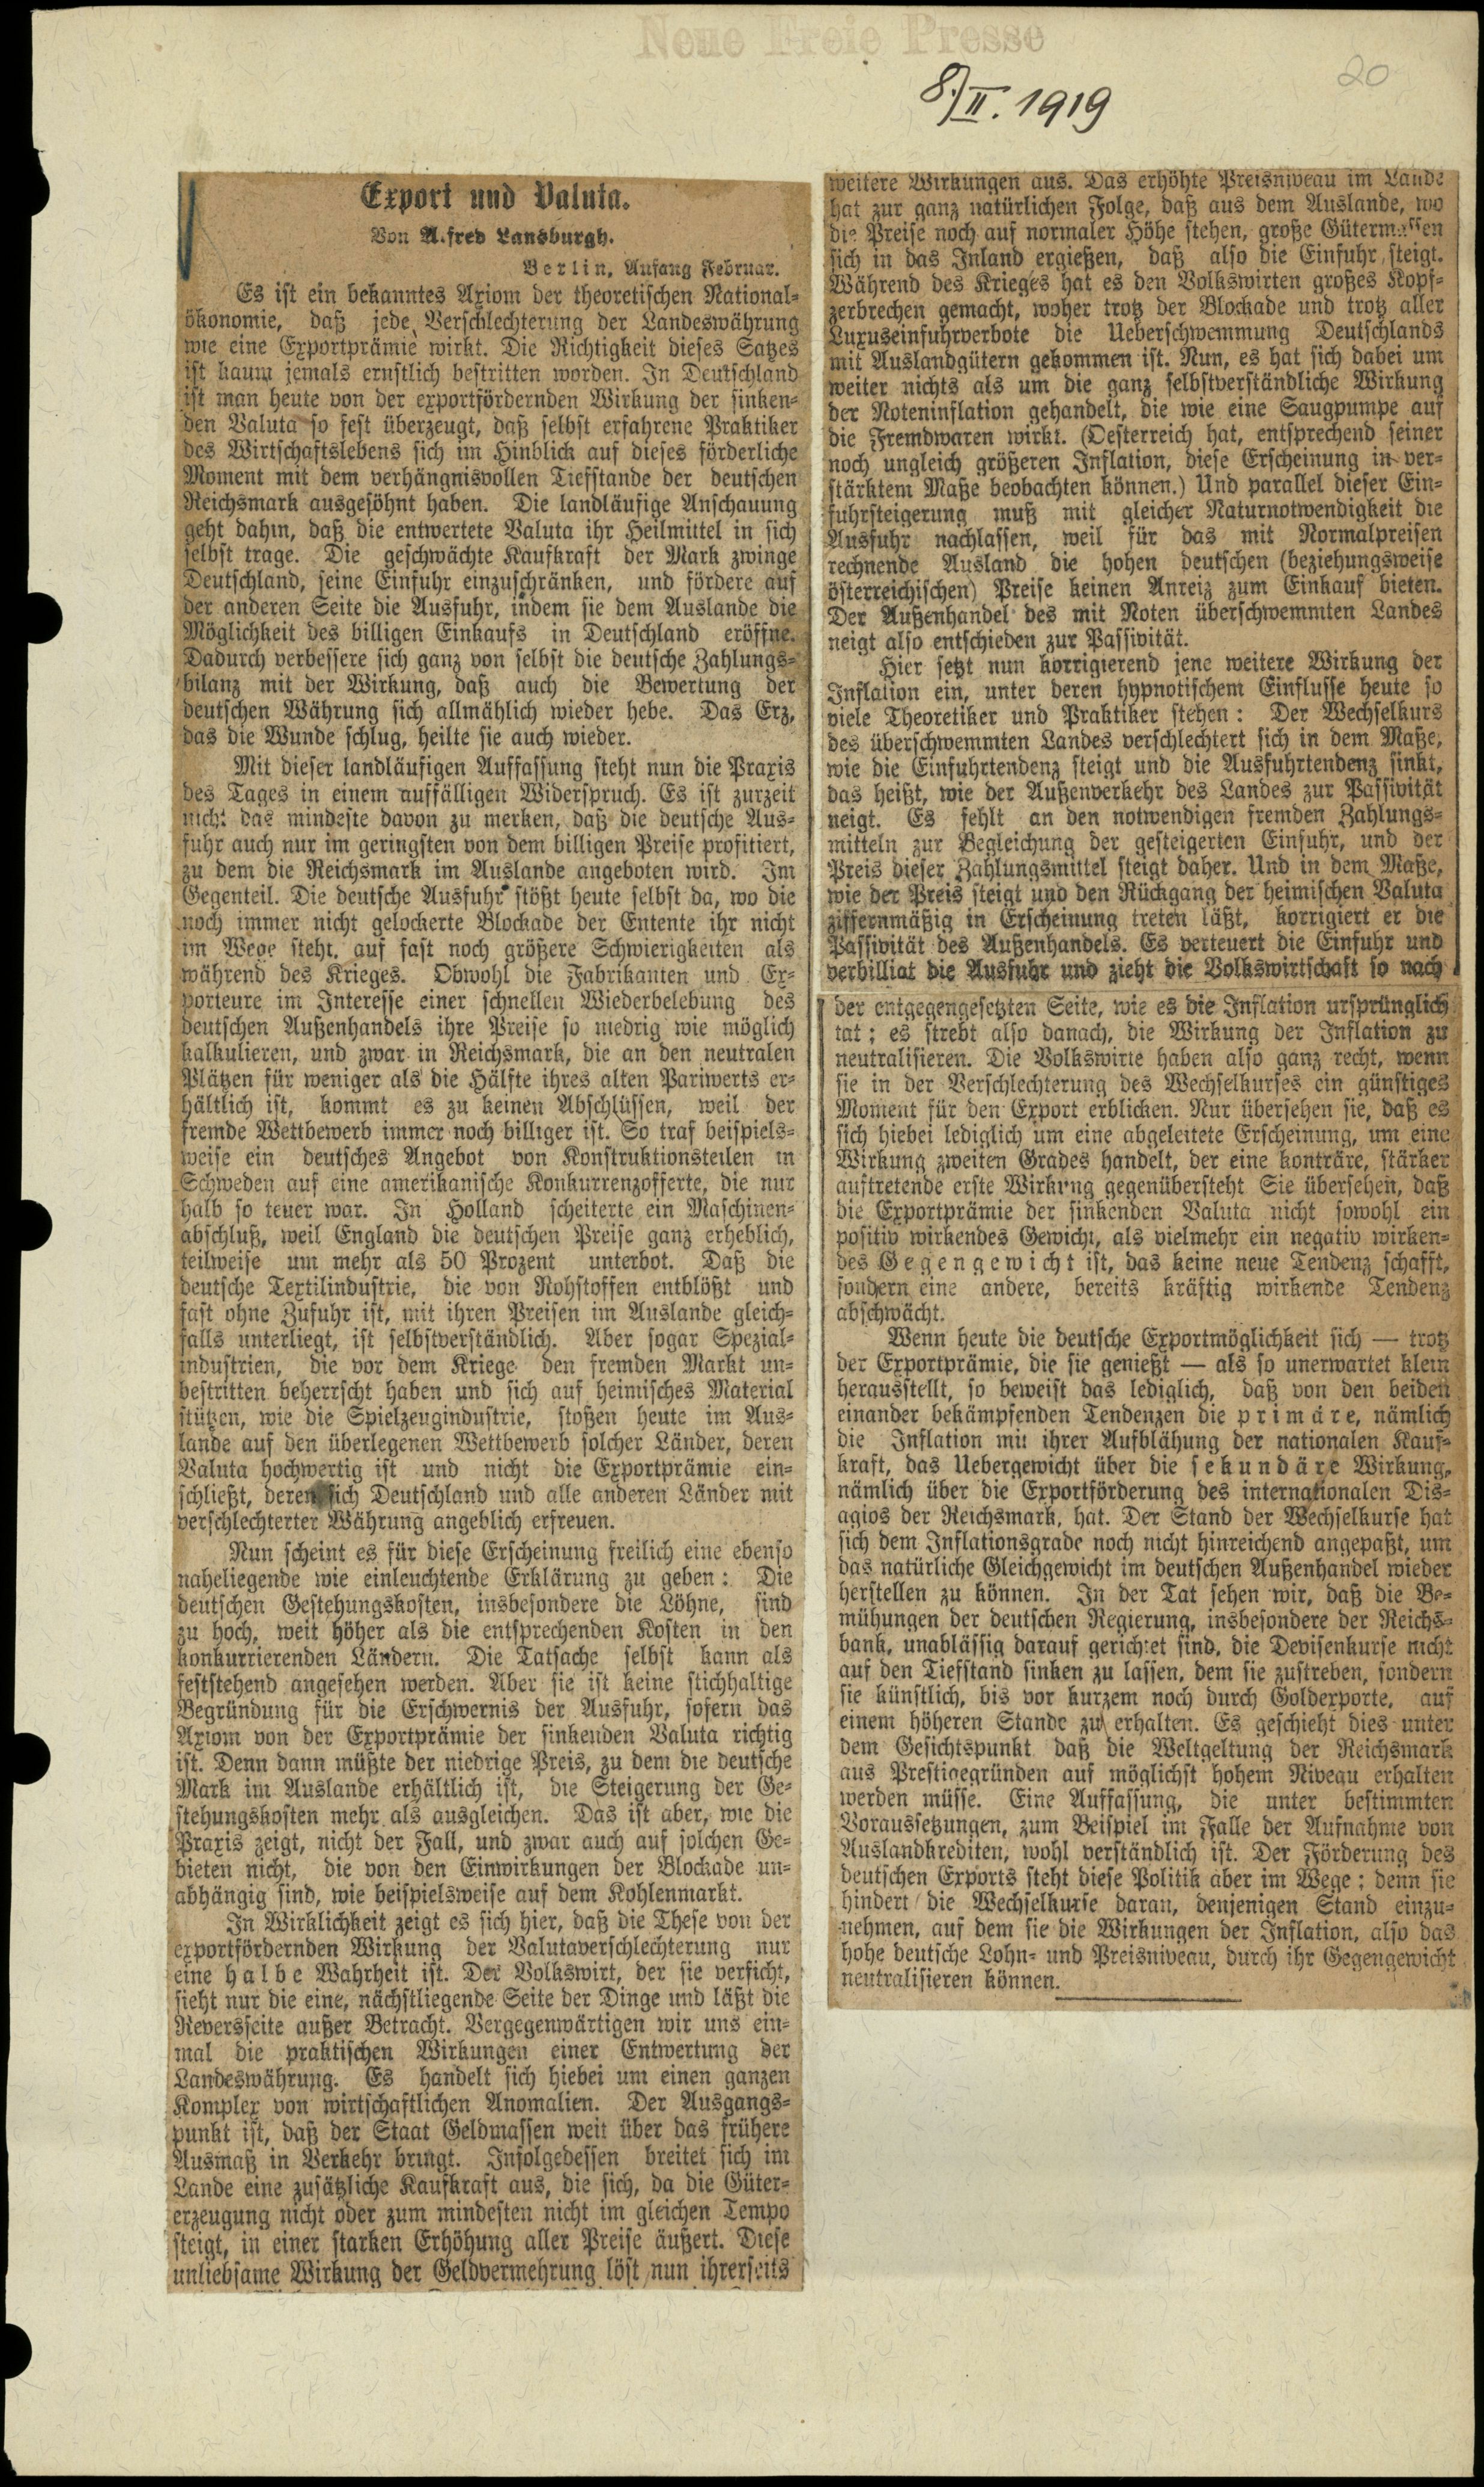 Neue Freie Presse
8./II. 1919
20
Export und Valuta.
Von Alfred Lansburgh.
Berlin, Anfang Februar.
Es ist ein bekanntes Axiom der theoretischen National-
ökonomie, daß jede Verschlechterung der Landeswährung
wie eine Exportprämie wirkt. Die Richtigkeit dieses Satzes
ist kaum jemals ernstlich bestritten worden. In Deutschland
ist man heute von der exportfördernden Wirkung der sinken-
den Valuta so fest überzeugt, daß selbst erfahrene Praktiker
des Wirtschaftslebens sich im Hinblick auf dieses förderliche
Moment mit dem verhängnisvollen Tiefstande der deutschen
Reichsmark ausgesöhnt haben. Die landläufige Anschauung
geht dahin, daß die entwertete Valuta ihr Heilmittel in sich
selbst trage. Die geschwächte Kaufkraft der Mark zwinge
Deutschland, seine Einfuhr einzuschränken, und fördere auf
der anderen Seite die Ausfuhr, indem sie dem Auslande die
Möglichkeit des billigen Einkaufs in Deutschland eröffne.
Dadurch verbessere sich ganz von selbst die deutsche Zahlungs-
bilanz mit der Wirkung, daß auch die Bewertung der
deutschen Währung sich allmählich wieder hebe. Das Erz,
das die Wunde schlug, heilte sie auch wieder.
Mit dieser landläufigen Auffassung steht nun die Praxis
des Tages in einem auffälligen Widerspruch. Es ist zurzeit
nicht das mindeste davon zu merken, daß die deutsche Aus-
fuhr auch nur im geringsten von dem billigen Preise profitiert,
zu dem die Reichsmark im Auslande angeboten wird. Im
Gegenteil. Die deutsche Ausfuhr stößt heute selbst da, wo die
noch immer nicht gelockerte Blockade der Entente ihr nicht
im Wege steht, auf fast noch größere Schwierigkeiten als
während des Krieges. Obwohl die Fabrikanten und Ex-
porteure im Interesse einer schnellen Wiederbelebung des
deutschen Außenhandels ihre Preise so niedrig wie möglich
kalkulieren, und zwar in Reichsmark, die an den neutralen
Plätzen für weniger als die Hälfte ihres alten Pariwerts er-
hältlich ist, kommt es zu keinen Abschlüssen, weil der
fremde Wettbewerb immer noch billiger ist. So traf beispiels-
weise ein deutsches Angebot von Konstruktionsteilen in
Schweden auf eine amerikanische Konkurrenzofferte, die nur
halb so teuer war. In Holland scheiterte ein Maschinen-
abschluß, weil England die deutschen Preise ganz erheblich,
teilweise um mehr als 50 Prozent unterbot. Daß die
deutsche Textilindustrie, die von Rohstoffen entblößt und
fast ohne Zufuhr ist, mit ihren Preisen im Auslande gleich-
falls unterliegt, ist selbstverständlich. Aber sogar Spezial-
industrien, die vor dem Kriege den fremden Markt un-
bestritten beherrscht haben und sich auf heimisches Material
stützen, wie die Spielzeugindustrie, stoßen heute im Aus-
lande auf den überlegenen Wettbewerb solcher Länder, deren
Valuta hochwertig ist und nicht die Exportprämie ein-
schließt, deren sich Deutschland und alle anderen Länder mit
verschlechterter Währung angeblich erfreuen.
Nun scheint es für diese Erscheinung freilich eine ebenso
naheliegende wie einleuchtende Erklärung zu geben: Die
deutschen Gestehungskosten, insbesondere die Löhne, sind
zu hoch, weit höher als die entsprechenden Kosten in den
konkurrierenden Ländern. Die Tatsache selbst kann als
feststehend angesehen werden. Aber sie ist keine stichhaltige
Begründung für die Erschwernis der Ausfuhr, sofern das
Axiom von der Exportprämie der sinkenden Valuta richtig
ist. Denn dann müßte der niedrige Preis, zu dem die deutsche
Mark im Auslande erhältlich ist, die Steigerung der Ge-
stehungskosten mehr als ausgleichen. Das ist aber, wie die
Praxis zeigt, nicht der Fall, und zwar auch auf solchen Ge-
bieten nicht, die von den Einwirkungen der Blockade un-
abhängig sind, wie beispielsweise auf dem Kohlenmarkt.
In Wirklichkeit zeigt es sich hier, daß die These von der
exportfördernden Wirkung der Valutaverschlechterung nur
eine halbe Wahrheit ist. Der Volkswirt, der sie verficht,
sieht nur die eine, nächstliegende Seite der Dinge und läßt die
Reversseite außer Betracht. Vergegenwärtigen wir uns ein-
mal die praktischen Wirkungen einer Entwertung der
Landeswährung. Es handelt sich hiebei um einen ganzen
Komplex von wirtschaftlichen Anomalien. Der Ausgangs-
punkt ist, daß der Staat Geldmassen weit über das frühere
Ausmaß in Verkehr bringt. Infolgedessen breitet sich im
Lande eine zusätzliche Kaufkraft aus, die sich, da die Güter-
erzeugung nicht oder zum mindesten nicht im gleichen Tempo
steigt, in einer starken Erhöhung aller Preise äußert. Diese
unliebsame Wirkung der Geldvermehrung löst nun ihrerseits
weitere Wirkungen aus. Das erhöhte Preisniveau im Lande
hat zur ganz natürlichen Folge, daß aus dem Auslande, wo
die Preise noch auf normaler Höhe stehen, große Gütermassen
sich in das Inland ergießen, daß also die Einfuhr steigt.
Während des Krieges hat es den Volkswirten großes Kopf-
zerbrechen gemacht, woher trotz der Blockade und trotz aller
Luxuseinfuhrverbote die Ueberschwemmung Deutschlands
mit Auslandgütern gekommen ist. Nun, es hat sich dabei um
weiter nichts als um die ganz selbstverständliche Wirkung
der Noteninflation gehandelt, die wie eine Saugpumpe auf
die Fremdwaren wirkt. (Oesterreich hat, entsprechend seiner
noch ungleich größeren Inflation, diese Erscheinung in ver-
stärktem Maße beobachten können.) Und parallel dieser Ein-
fuhrsteigerung muß mit gleicher Naturnotwendigkeit die
Ausfuhr nachlassen, weil für das mit Normalpreisen
rechnende Ausland die hohen deutschen (beziehungsweise
österreichischen) Preise keinen Anreiz zum Einkauf bieten.
Der Außenhandel des mit Noten überschwemmten Landes
neigt also entschieden zur Passivität.
Hier setzt nun korrigierend jene weitere Wirkung der
Inflation ein, unter deren hypnotischem Einflusse heute so
viele Theoretiker und Praktiker stehen: Der Wechselkurs
des überschwemmten Landes verschlechtert sich in dem Maße,
wie die Einfuhrtendenz steigt und die Ausfuhrtendenz sinkt,
das heißt, wie der Außenverkehr des Landes zur Passivität
neigt. Es fehlt an den notwendigen fremden Zahlungs-
mitteln zur Begleichung der gesteigerten Einfuhr, und der
Preis dieser Zahlungsmittel steigt daher. Und in dem Maße,
wie der Preis steigt und den Rückgang der heimischen Valuta
ziffernmäßig in Erscheinung treten läßt, korrigiert er die
Passivität des Außenhandels. Es verteuert die Einfuhr und
verbilligt die Ausfuhr und zieht die Volkswirtschaft so nach
der entgegengesetzten Seite, wie es die Inflation ursprünglich
tat; es strebt also danach, die Wirkung der Inflation zu
neutralisieren. Die Volkswirte haben also ganz recht, wenn
sie in der Verschlechterung des Wechselkurses ein günstiges
Moment für den Export erblicken. Nur übersehen sie, daß es
sich hiebei lediglich um eine abgeleitete Erscheinung, um eine
Wirkung zweiten Grades handelt, der eine konträre, stärker
auftretende erste Wirkung gegenübersteht Sie übersehen, daß
die Exportprämie der sinkenden Valuta nicht sowohl ein
positiv wirkendes Gewicht, als vielmehr ein negativ wirken-
des Gegengewicht ist, das keine neue Tendenz schafft,
sondern eine andere, bereits kräftig wirkende Tendenz
abschwächt.
Wenn heute die deutsche Exportmöglichkeit sich — trotz
der Exportprämie, die sie genießt — als so unerwartet klein
herausstellt, so beweist das lediglich, daß von den beiden
einander bekämpfenden Tendenzen die primäre, nämlich
die Inflation mit ihrer Aufblähung der nationalen Kauf-
kraft, das Uebergewicht über die sekundäre Wirkung,
nämlich über die Exportförderung des internationalen Dis-
agios der Reichsmark, hat. Der Stand der Wechselkurse hat
sich dem Inflationsgrade noch nicht hinreichend angepaßt, um
das natürliche Gleichgewicht im deutschen Außenhandel wieder
herstellen zu können. In der Tat sehen wir, daß die Be-
mühungen der deutschen Regierung, insbesondere der Reichs-
bank, unablässig darauf gerichtet sind, die Devisenkurse nicht
auf den Tiefstand sinken zu lassen, dem sie zustreben, sondern
sie künstlich, bis vor kurzem noch durch Goldexporte, auf
einem höheren Stande zu erhalten. Es geschieht dies unter
dem Gesichtspunkt daß die Weltgeltung der Reichsmark
aus Prestigegründen auf möglichst hohem Niveau erhalten
werden müsse. Eine Auffassung, die unter bestimmten
Voraussetzungen, zum Beispiel im Falle der Aufnahme von
Auslandkrediten, wohl verständlich ist. Der Förderung des
deutschen Exports steht diese Politik aber im Wege; denn sie
hindert die Wechselkurse daran, denjenigen Stand einzu-
nehmen, auf dem sie die Wirkungen der Inflation, also das
hohe deutsche Lohn- und Preisniveau, durch ihr Gegengewicht
neutralisieren können.